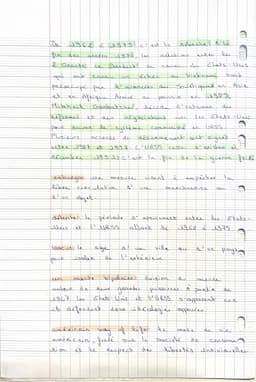 De 1962 à 1979, c'est la détente. À la
fin des années 1970, les relations entre les
2 Grands se
qui ont un échec au Vietnam, sont
par l' des Soviétiques en Asie
et en Afrique. Arrivé au pouvoir en 1985,
Mikhaïl Gorbatchev décide d'entamer des
réformes et des négociations avec les États-Unis
pour le système communiste en URSS.
Plusieurs accords de désarmement sont signés
entre 1987 et L'URSS cesse d'exister en
décembre 1991, c'est la fin de la guerre froide
embargo: une mesure visant à empêcher la
libre circulation d'une marchandise ou
d'un objet.
détente: la période d'apaisement entre les États-
Unis et l'URSS allant de 1962 à 1979
blocus: le siège d'une ville ou d'un pays
pour isoler de l'extérieur
un monde bipolaire: division du monde
autour de deux grandes puissances à partir de
1947 les États-Unis et l'URSS s'opposent car
ils défendent deux idéologies opposées
american way of life: le mode de vie
américain, fondé sur la société de consomma-
tion et le respect des libertés individuelles